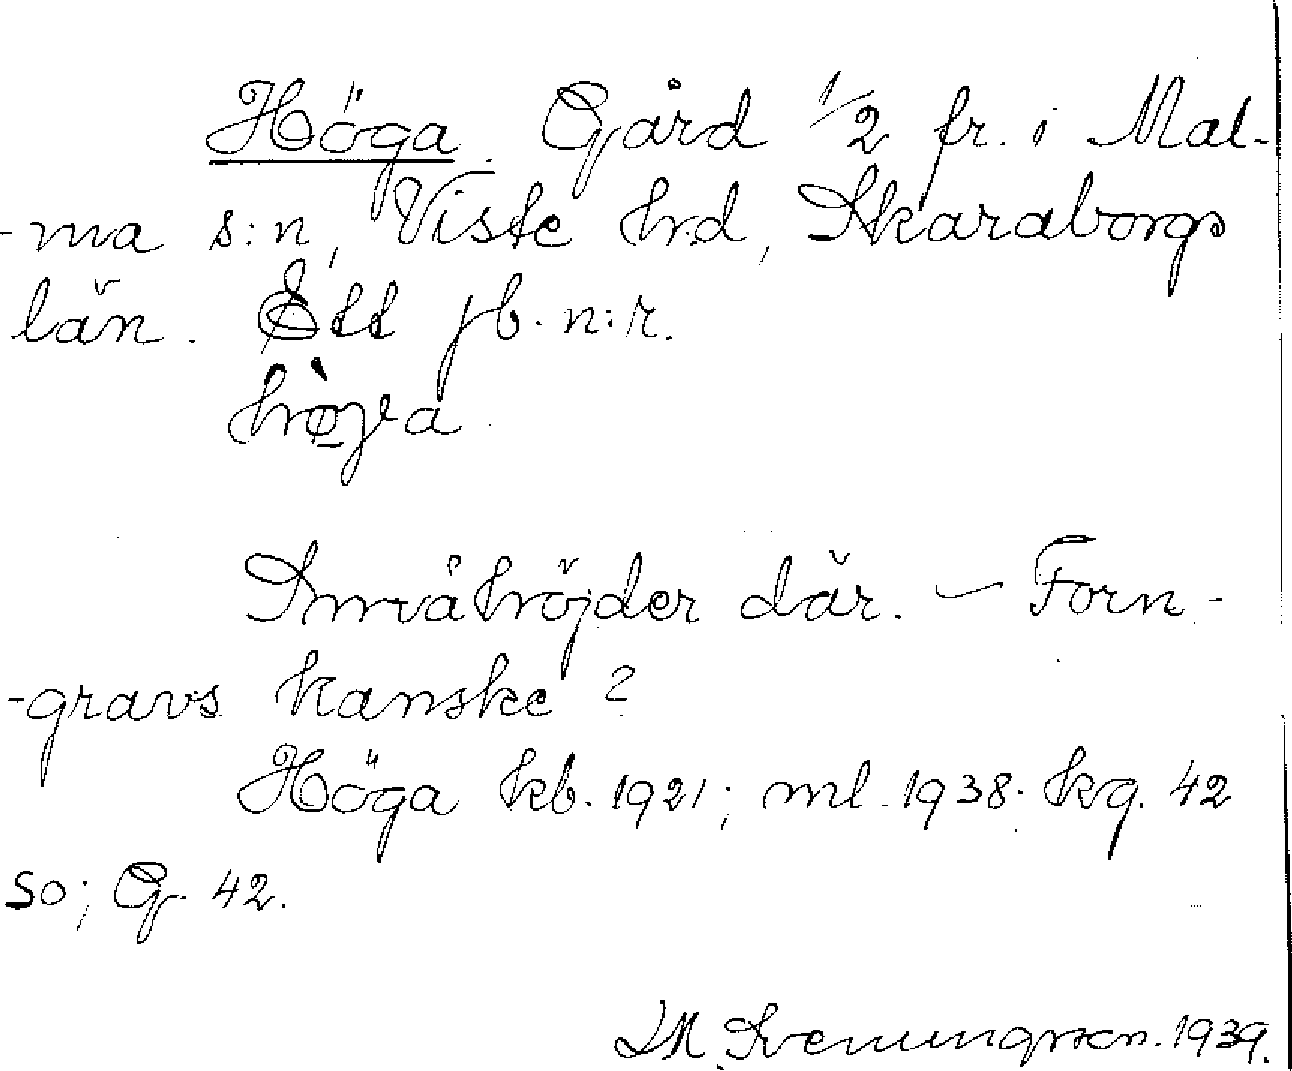 Höga. Gård 1/2 fr. i Mal-
-ma s:n, Viste hrd, Skaraborgs
län. Ett jb. n:r.
hø̀ga.
Småhöjder där. – Forn-
-gravs kanske?
Höga kb. 1921; ml. 1938. kg. 42
so; G. 42.
IM. Svenungsson. 1939.